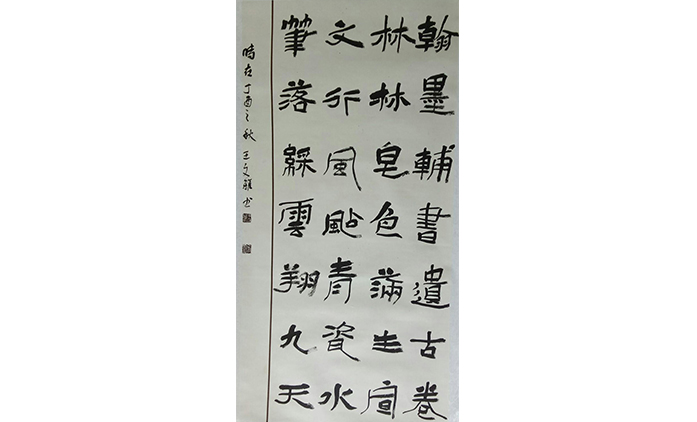 翰墨輔書遺古卷
林林皂色滿生宣
文行風颭青瓷水
筆落綵雲翔九天
時在丁酉之秋 王文雅书